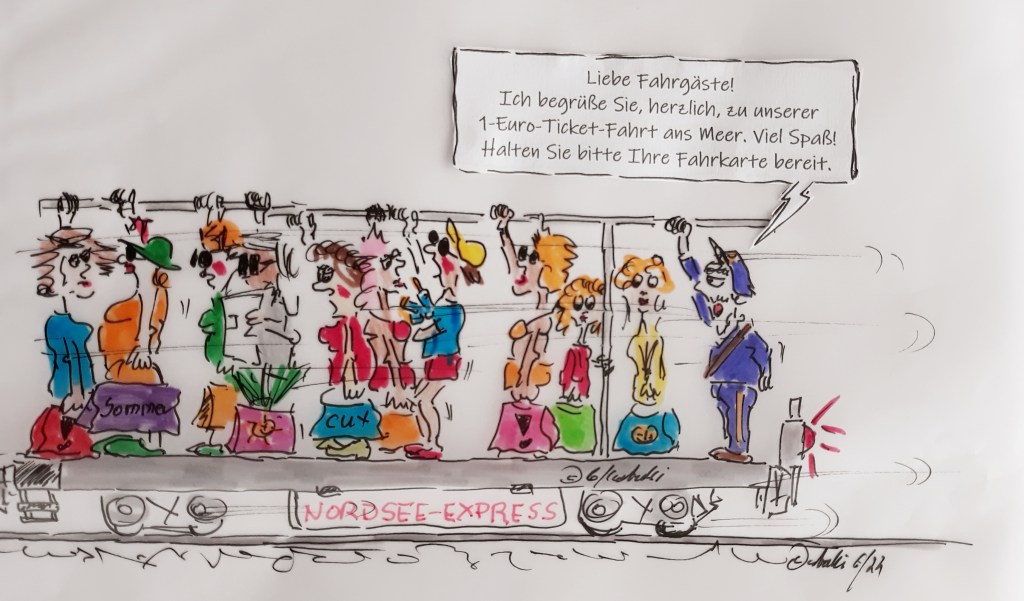 Liebe Fahrgäste!
Ich begrüße Sie, herzlich, zu unserer
1-Euro-Ticket-Fahrt ans Meer. Viel Spaß!
Halten Sie bitte Ihre Fahrkarte bereit.
Sommer
cux
NORDSEE-EXPRESS